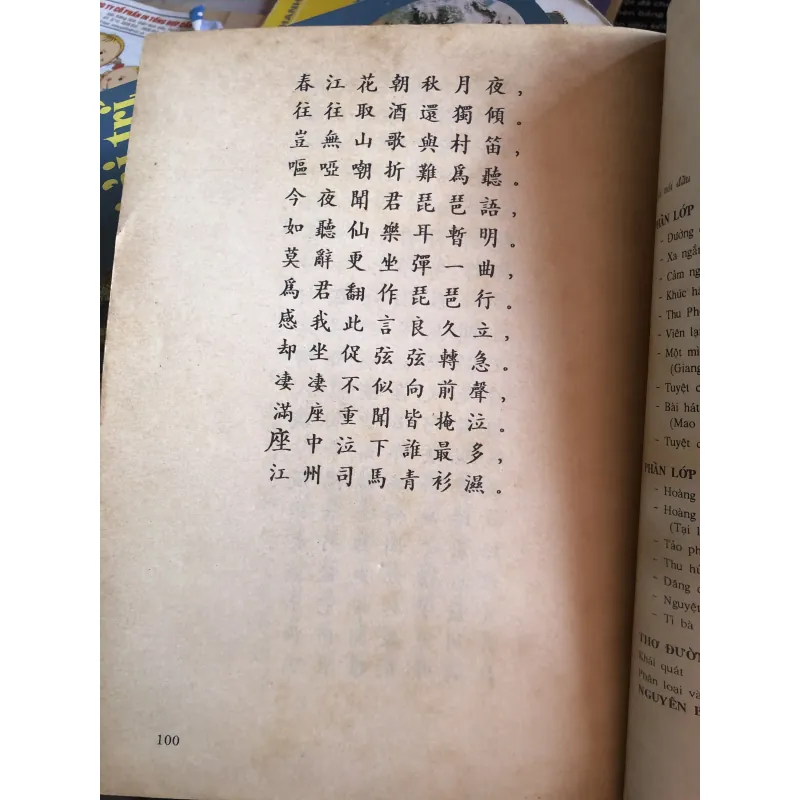 春江花朝秋月夜，
往往取酒還獨傾。
豈無山歌與村笛，
嘔啞嘲折難爲聽。
今夜聞君琵琶語，
如聽仙樂耳暫明。
莫辭更坐彈一曲，
爲君翻作琵琶行。
感我此言良久立，
却坐促弦弦轉急。
凄凄不似向前聲，
滿座重聞皆掩泣。
座中泣下誰最多，
江州司馬青衫濕。
100
nối đữu
PHẦN LỚP
- Dường
- Xa ngắm
- Cảm ng
- Khúc há
- Thu Ph
- Viên lạ
- Một mì
(Giang
- Tuyệt c
- Bài hát
(Mao
- Tuyệt c
PHẦN LỚP
- Hoàng
- Hoàng
(Tại l
- Tảo ph
- Thu hứ
- Đăng c
- Nguyệt
- Tì bà
THƠ ĐƯỜ
Khái quát
Phân loại và
NGUYÊN B